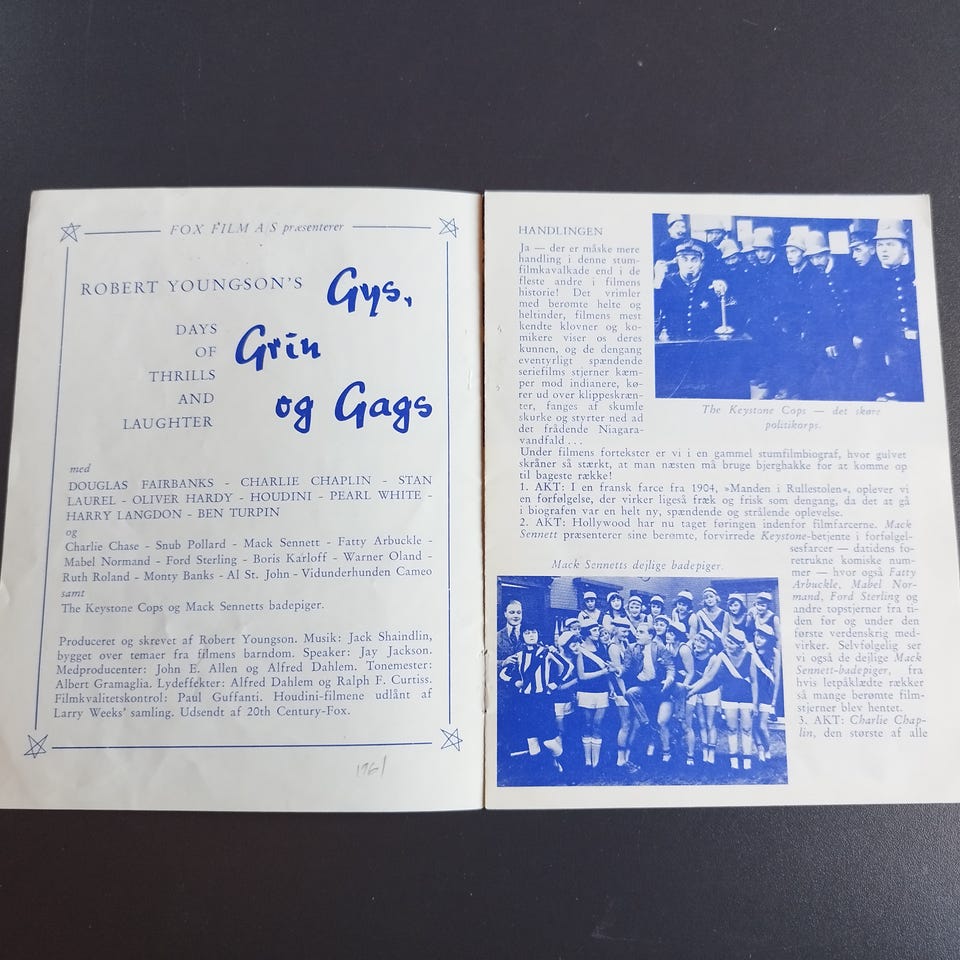 FOX FILM A/S præsenterer
ROBERT YOUNGSON'S Gys,
DAYS
OF
THRILLS
AND
LAUGHTER
Grin
og Gags
med
DOUGLAS FAIRBANKS - CHARLIE CHAPLIN - STAN
LAUREL - OLIVER HARDY - HOUDINI - PEARL WHITE -
HARRY LANGDON - BEN TURPIN
og
Charlie Chase - Snub Pollard - Mack Sennett - Fatty Arbuckle -
Mabel Normand - Ford Sterling - Boris Karloff - Warner Oland -
Ruth Roland - Monty Banks - Al St. John - Vidunderhunden Cameo
samt
The Keystone Cops og Mack Sennetts badepiger.
Produceret og skrevet af Robert Youngson. Musik: Jack Shaindlin,
bygget over temaer fra filmens barndom. Speaker: Jay Jackson.
Medproducenter: John E. Allen og Alfred Dahlem. Tonemester:
Albert Gramaglia. Lydeffekter: Alfred Dahlem og Ralph F. Curtiss.
Filmkvalitetskontrol: Paul Guffanti. Houdini-filmene udlånt af
Larry Weeks' samling. Udsendt af 20th Century-Fox.
1961
HANDLINGEN
Ja — der er måske mere
handling i denne stum-
filmkavalkade end i de
fleste andre i filmens
historie! Det vrimler
med berømte helte og
heltinder, filmens mest
kendte klovner og ko-
mikere viser os deres
kunnen, og de dengang
eventyrligt spændende
seriefilms stjerner kæm-
per mod indianere, kø-
rer ud over klippeskræn-
ter, fanges af skumle
skurke og styrter ned ad
det frådende Niagara-
vandfald . . .
The Keystone Cops — det skøre
politikorps.
Under filmens fortekster er vi i en gammel stumfilmbiograf, hvor gulvet
skråner så stærkt, at man næsten må bruge bjerghakke for at komme op
til bageste række!
1. AKT: I en fransk farce fra 1904, »Manden i Rullestolen«, oplever vi
en forfølgelse, der virker ligeså fræk og frisk som dengang, da det at gå
i biografen var en helt ny, spændende og strålende oplevelse.
2. AKT: Hollywood har nu taget føringen indenfor filmfarcerne. Mack
Sennett præsenterer sine berømte, forvirrede Keystone-betjente i forfølgel-
sesfarcer — datidens fo-
retrukne komiske num-
mer — hvor også Fatty
Arbuckle, Mabel Nor-
mand, Ford Sterling og
andre topstjerner fra ti-
den før og under den
første verdenskrig med-
virker. Selvfølgelig ser
vi også de dejlige Mack
Sennett-badepiger, fra
hvis letpåklædte rækker
så mange berømte film-
stjerner blev hentet.
3. AKT: Charlie Chap-
lin, den største af alle
Mack Sennetts dejlige badepiger.